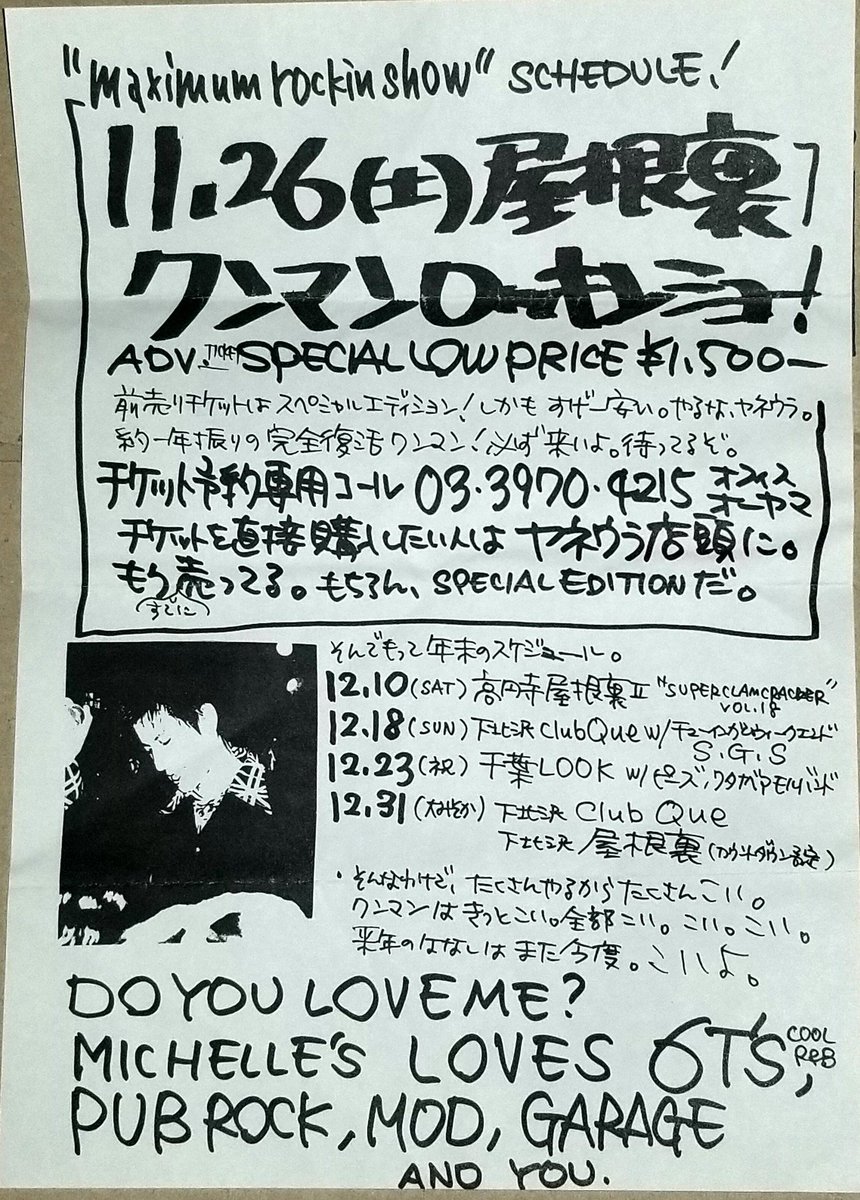 "maximum rockin show" SCHEDULE!
11.26(土)屋根裏
ワンマンロールショー!
ADV. TICKET SPECIAL LOW PRICE ¥1,500—
前売りチケットはスペシャルエディション!しかも すげー安い。やるな、ヤネウラ。
約一年振りの完全復活ワンマン!必ず来いよ。待ってるぞ。
チケット予約専用コール 03・3970・4215 オフィス オーヤマ
チケットを直接購入したい人は ヤネウラ店頭に。
もう売ってる。もちろん、SPECIAL EDITIONだ。
(すでに)
そんでもって年末のスケジュール。
12.10(SAT) 高円寺屋根裏Ⅱ "SUPER CLAMCRACKER" VOL.18
12.18(SUN) 下北沢 Club Que w/チューインガムウィークエンド S.G.S
12.23(祝) 千葉LOOK w/ピーズ、
12.31(大みそか) 下北沢 Club Que
下北沢 屋根裏(カウントダウン予定)
・そんなわけで、たくさんやるからたくさんこい。
ワンマンはきっとこい。全部こい。こい。こい。
来年のはなしは また今度。こいよ。
DO YOU LOVE ME?
MICHELLE'S LOVES 6T'S, COOL R&B
PUB ROCK, MOD, GARAGE
AND YOU.